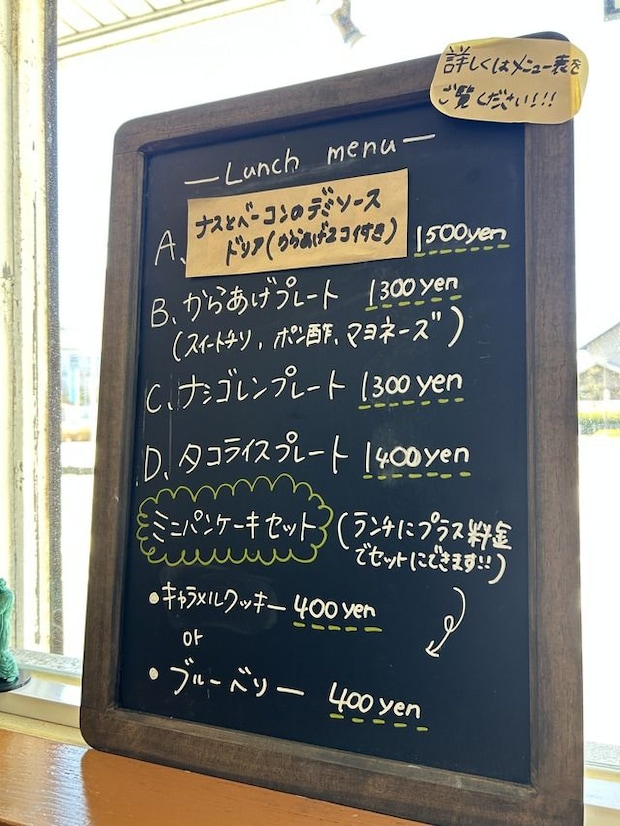 詳しくはメニュー表を
ご覧ください!!!
— Lunch menu —
A、ナスとベーコンのデミソース
ドリア(からあげ2コ付き) 1500yen
B、からあげプレート 1300yen
(スイートチリ, ポン酢、マヨネーズ)
C、ナシゴレンプレート 1300yen
D、タコライスプレート 1400yen
ミニパンケーキセット (ランチにプラス料金
でセットにできます!!)
●キャラメルクッキー 400yen
or
●ブルーベリー 400yen